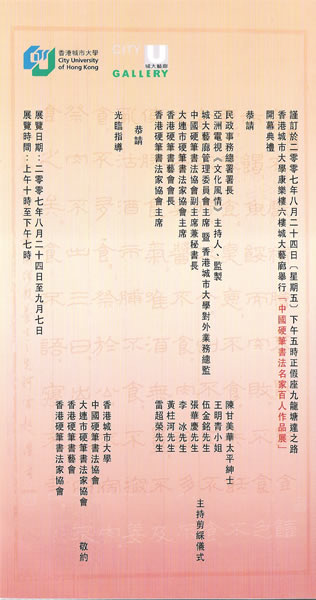 香港城市大學
City University
of Hong Kong
CITY U
城大藝廊
GALLERY
謹訂於二零零七年八月二十四日（星期五）下午五時正假座九龍塘達之路
香港城市大學康樂樓六樓城大藝廊舉行「中國硬筆書法名家百人作品展」
開幕典禮
恭請
民政事務總署署長 陳甘美華太平紳士
亞洲電視《文化風情》主持人、監製 王明青小姐
城大藝廊管理委員會主席 暨 香港城市大學對外業務總監 伍金銘先生
中國硬筆書法協會副主席兼秘書長 張華慶先生
大連市硬筆書法家協會主席 李 冰先生
香港硬筆書藝會會長 黃柱河先生
香港硬筆書法家協會主席 雷超榮先生
主持剪綵儀式
恭請
光臨指導
香港城市大學
中國硬筆書法協會
大連市硬筆書法家協會
香港硬筆書藝會
香港硬筆書法家協會
敬約
展覽日期：二零零七年八月二十四日至九月七日
展覽時間：上午十時至下午七時